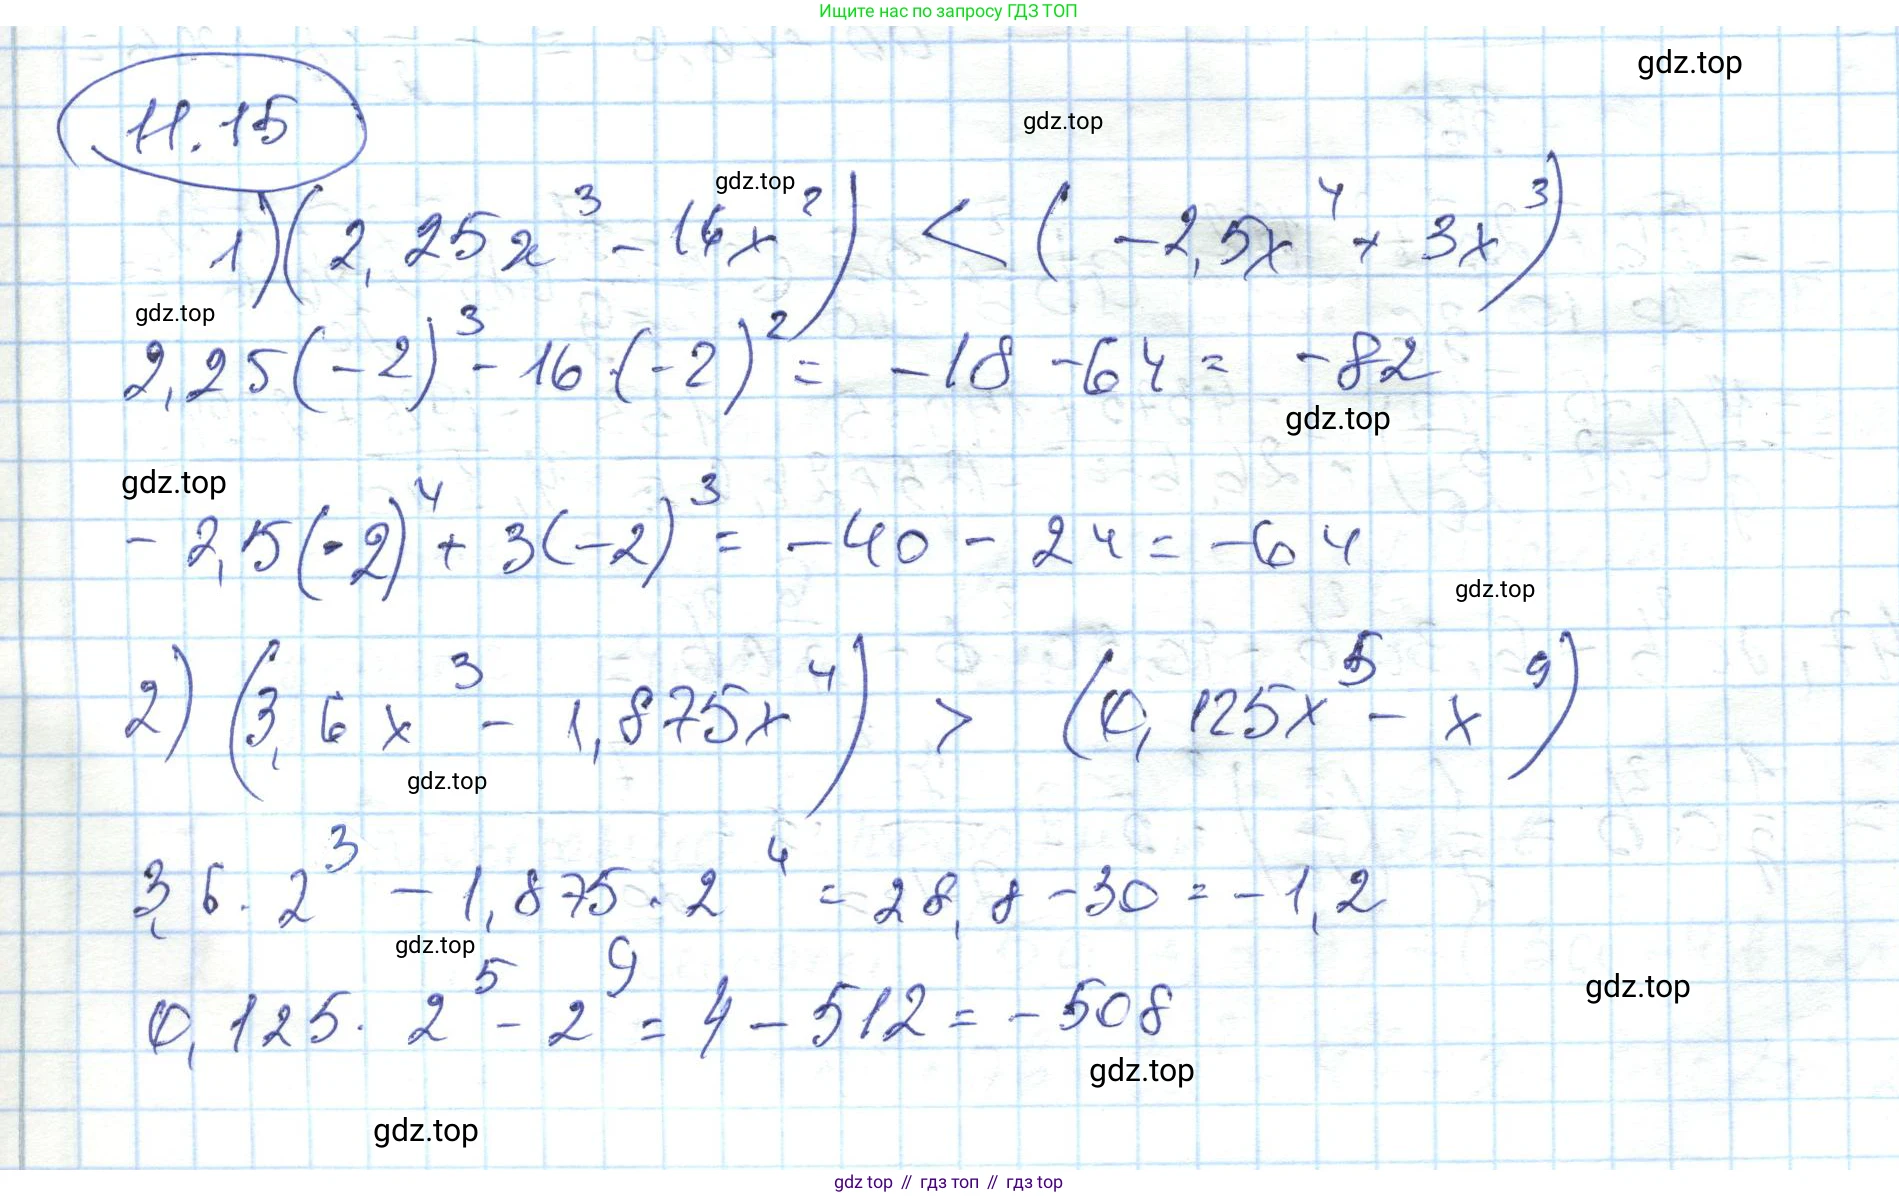 Ищите нас по запросу ГДЗ ТОП
gdz.top
11.15
gdz.top
gdz.top
1) (2,25x³ - 16x²) < (-2,5x⁴ + 3x³)
gdz.top
2,25(-2)³ - 16·(-2)² = -18 - 64 = -82
gdz.top
gdz.top
- 2,5(-2)⁴ + 3(-2)³ = -40 - 24 = -64
gdz.top
2) (3,6x³ - 1,875x⁴) > (0,125x⁵ - x⁹)
gdz.top
3,6·2³ - 1,875·2⁴ = 28,8 - 30 = -1,2
gdz.top
0,125·2⁵ - 2⁹ = 4 - 512 = -508
gdz.top
gdz.top
gdz.top
gdz top // гдз топ // гдз top